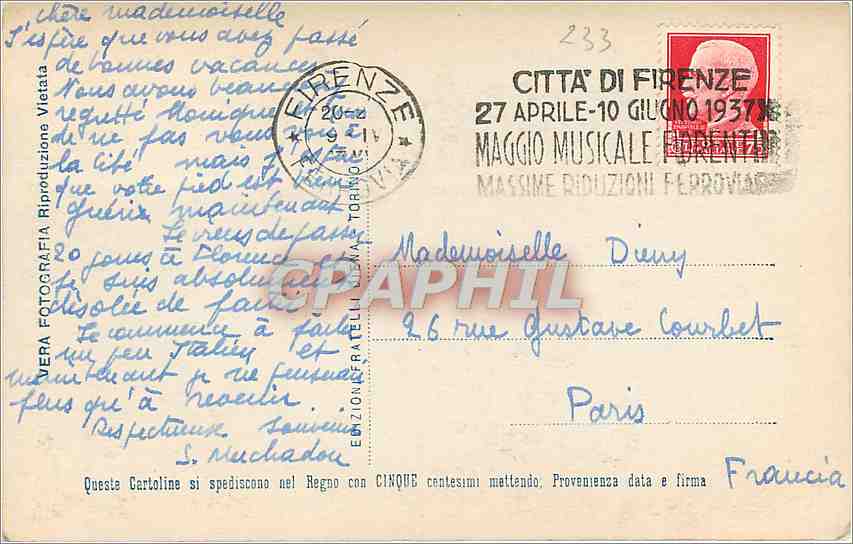 chère mademoiselle
J'espère que vous avez passé
de bonnes vacances
Nous avons beaucoup
regretté Monique et
de ne pas vous
la Cité mais j'espère
que votre pied est bien
guérie maintenant
Je viens de passer
20 jours à Florence et
je suis absolument
désolée de partir
Je commence à parler
un peu Italien et
maintenant je ne penserai
plus qu'à revenir
Respectueux Souvenir
S. Muchadou
VERA FOTOGRAFIA Riproduzione Vietata
EDIZIONI FRATELLI DIENA, TORINO
FIRENZE
233
CITTA' DI FIRENZE
27 APRILE-10 GIUGNO 1937 XV
MAGGIO MUSICALE FIORENTINO
MASSIME RIDUZIONI FERROVIARIE
CPAPHIL
Mademoiselle Dieny
26 rue Gustave Courbet
Paris
Francia
Queste Cartoline si spediscono nel Regno con CINQUE centesimi mettendo, Provenienza data e firma